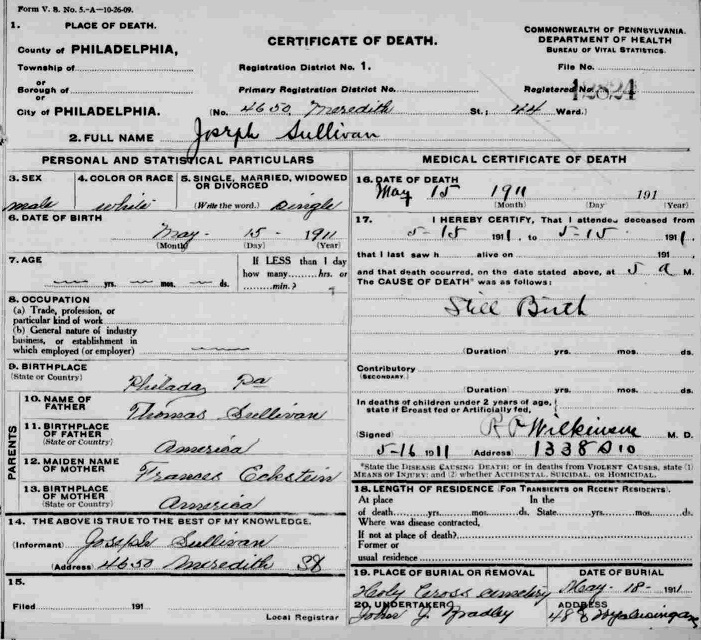 Form V. S. No. 5.-A-10-26-09.
1. PLACE OF DEATH.
County of PHILADELPHIA,
Township of
or
Borough of
or
City of PHILADELPHIA.
CERTIFICATE OF DEATH.
Registration District No. 1.
Primary Registration District No.
(No. 4650 Meredith St.; 44 Ward.)
COMMONWEALTH OF PENNSYLVANIA.
DEPARTMENT OF HEALTH
BUREAU OF VITAL STATISTICS.
File No.
Registered No. 12824
2. FULL NAME Joseph Sullivan
PERSONAL AND STATISTICAL PARTICULARS
3. SEX
male
4. COLOR OR RACE
white
5. SINGLE, MARRIED, WIDOWED
OR DIVORCED
(Write the word.) Single
6. DATE OF BIRTH
May - 15 - 1911
(Month) (Day) (Year)
7. AGE
yrs. mos. ds.
If LESS than 1 day
how many hrs. or
min.?
8. OCCUPATION
(a) Trade, profession, or
particular kind of work
(b) General nature of industry
business, or establishment in
which employed (or employer)
9. BIRTHPLACE
(State or Country)
Philada Pa
PARENTS
10. NAME OF
FATHER
Thomas Sullivan
11. BIRTHPLACE
OF FATHER
(State or Country)
America
12. MAIDEN NAME
OF MOTHER
Frances Eckstein
13. BIRTHPLACE
OF MOTHER
(State or Country)
America
14. THE ABOVE IS TRUE TO THE BEST OF MY KNOWLEDGE.
(Informant) Joseph Sullivan
(Address) 4650 Meredith
15.
Filed 191
Local Registrar
MEDICAL CERTIFICATE OF DEATH
16. DATE OF DEATH
May 15 1911
(Month) (Day) 191 (Year)
17. I HEREBY CERTIFY, That I attended deceased from
5-15 1911, to 5-15- 1911,
that I last saw h alive on 191
and that death occurred, on the date stated above, at 5 a M.
The CAUSE OF DEATH* was as follows:
Still Birth
(Duration) yrs. mos. ds.
Contributory
(SECONDARY.)
(Duration) yrs. mos. ds.
In deaths of children under 2 years of age,
state if Breast fed or Artificially fed,
(Signed) Wilkinson M. D.
5-16 1911 (Address) 1338
*State the DISEASE CAUSING DEATH; or in deaths from VIOLENT CAUSES, state (1)
MEANS OF INJURY; and (2) whether ACCIDENTAL, SUICIDAL, OR HOMICIDAL.
18. LENGTH OF RESIDENCE (FOR TRANSIENTS OR RECENT RESIDENTS).
At place In the
of death yrs. mos. ds. State yrs. mos. ds.
Where was disease contracted,
If not at place of death?
Former or
usual residence
19. PLACE OF BURIAL OR REMOVAL
Holy Cross Cemetery
DATE OF BURIAL
May - 18 - 1911
20. UNDERTAKER
John J. Bradley
ADDRESS